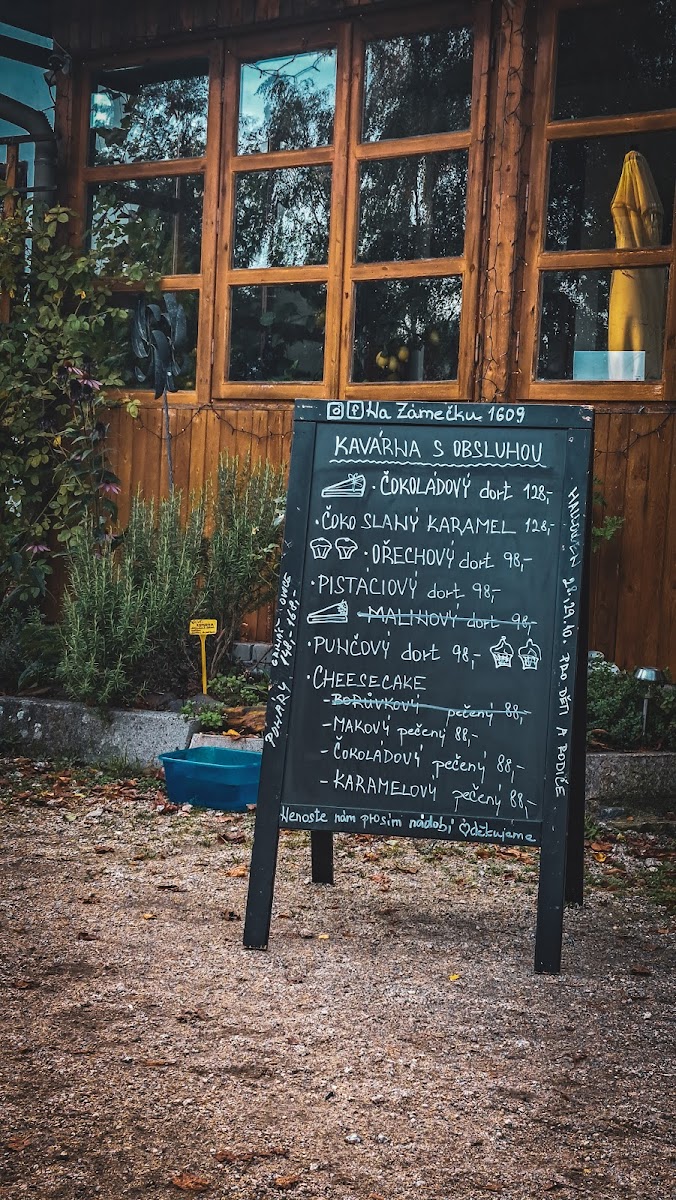 Na Zámečku 1609
KAVÁRNA S OBSLUHOU
· ČOKOLÁDOVÝ dort 128,-
· ČOKO SLANÝ KARAMEL 128,-
· OŘECHOVÝ dort 98,-
· PISTACIOVÝ dort 98,-
· MALINOVÝ dort 98,-
· PUNČOVÝ dort 98,-
· CHEESECAKE
- BORŮVKOVÝ pečený 88,-
- MAKOVÝ pečený 88,-
- ČOKOLÁDOVÝ pečený 88,-
- KARAMELOVÝ pečený 88,-
Nenoste nám prosím nádobí děkujeme
POHÁRY
148,- 168,-
OVOCE
28.-29.10. PRO DĚTI A RODIČE